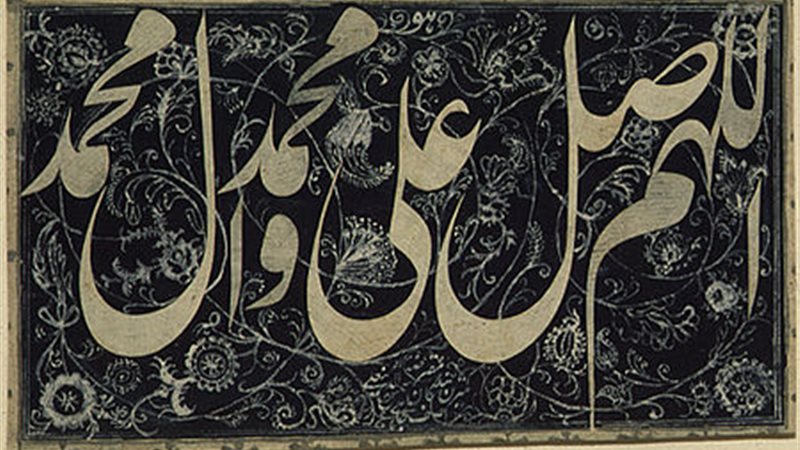 اللهم صل علی محمد و ال محمد